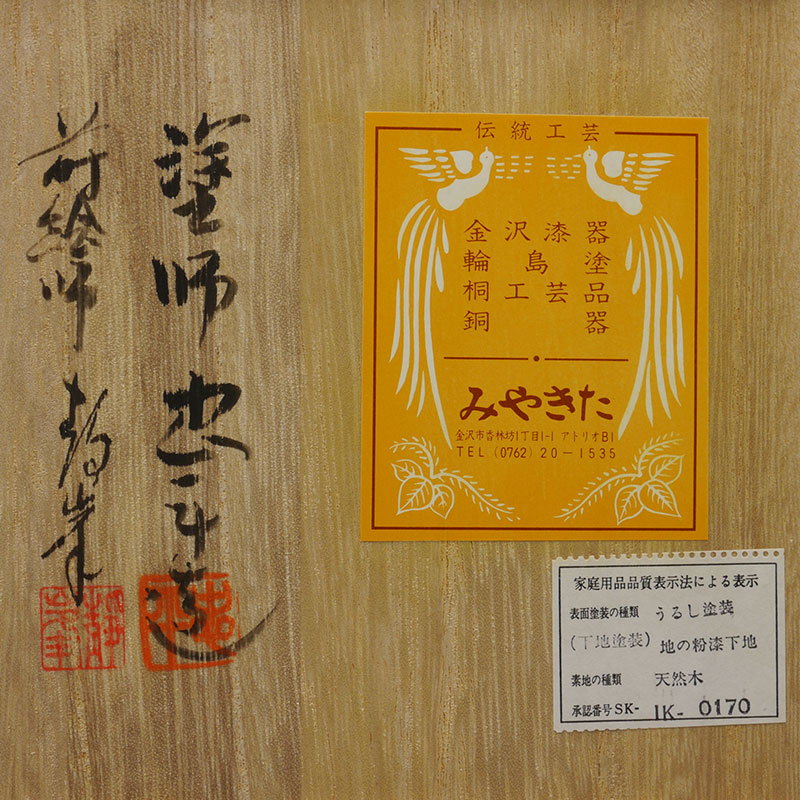 塗師
蒔絵師
伝統工芸
金沢漆器
輪島塗
桐工芸品
銅器
みやきた
金沢市香林坊1丁目1-1 アトリオB1
TEL (0762) 20-1535
家庭用品品質表示法による表示
表面塗装の種類 うるし塗装
(下地塗装) 地の粉漆下地
素地の種類 天然木
承認番号 SK- IK- 0170